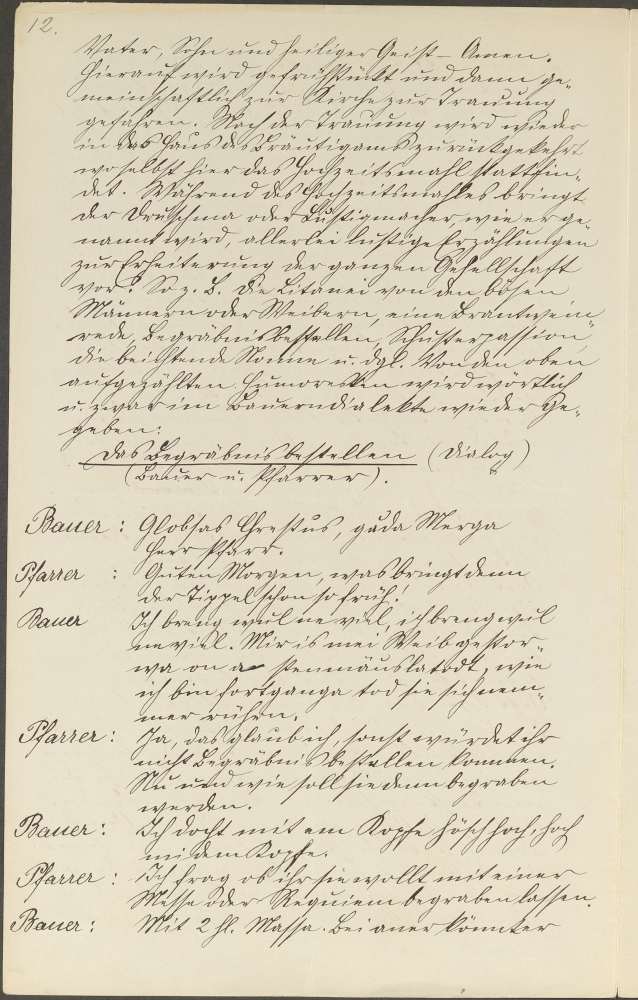 12.
Vater, Sohn und heiliger Geist – Amen.
Hierauf wird gefrühstückt und dann ge„
meinschaftlich zur Kirche zur Trauung
gefahren. Nach der Trauung wird wieder
in das Haus des Bräutigams zurückgekehrt
woselbst hier das Hochzeitsmahl stattfin„
det. Während des Hochzeitsmahles bringt
der Druschma oder Lustigmacher, wie er ge„
nannt wird, allerlei lustige Erzählungen
zur Erheiterung der ganzen Gesellschaft
vor. So z. B. die Litanei von den bösen
Männern oder Weibern, eine Brantwein„
rede, Begräbnisbestellen, Schusterpassion,
die beichtende Nonne u. dgl. Von den oben
aufgezählten Humoresken wird wörtlich
u. zwar im Bauerndialekte wiederge„
geben:
Das Begräbnisbestellen (Dialog)
(Bauer u. Pfarrer).
Bauer: Globsas Chrestus, guda Merga
Herr Pfarr.
Pfarrer: Guten Morgen, was bringt denn
der Tippel schon so früh!
Bauer Ich breng wul ne viel, ich breng wul
ne viel. Mir is mei Weib gestor„
wa on a wie
ich bin fortganga tod sie sich nem„
mer rühren.
Pfarrer: Ja, das glaub ich, sonst würdet ihr
nicht Begräbnis bestellen kommen.
Nu und wie soll sie denn begraben
werden.
Bauer: Ich docht mit em Kopfe hösch hoch, hoch
mi dem Kopfe.
Pfarrer: Ich frag ob ihr sie wollt mit einer
Messe oder Requiem begraben lassen.
Bauer: Mit 2 hl. Massa. Bei aner könnt er